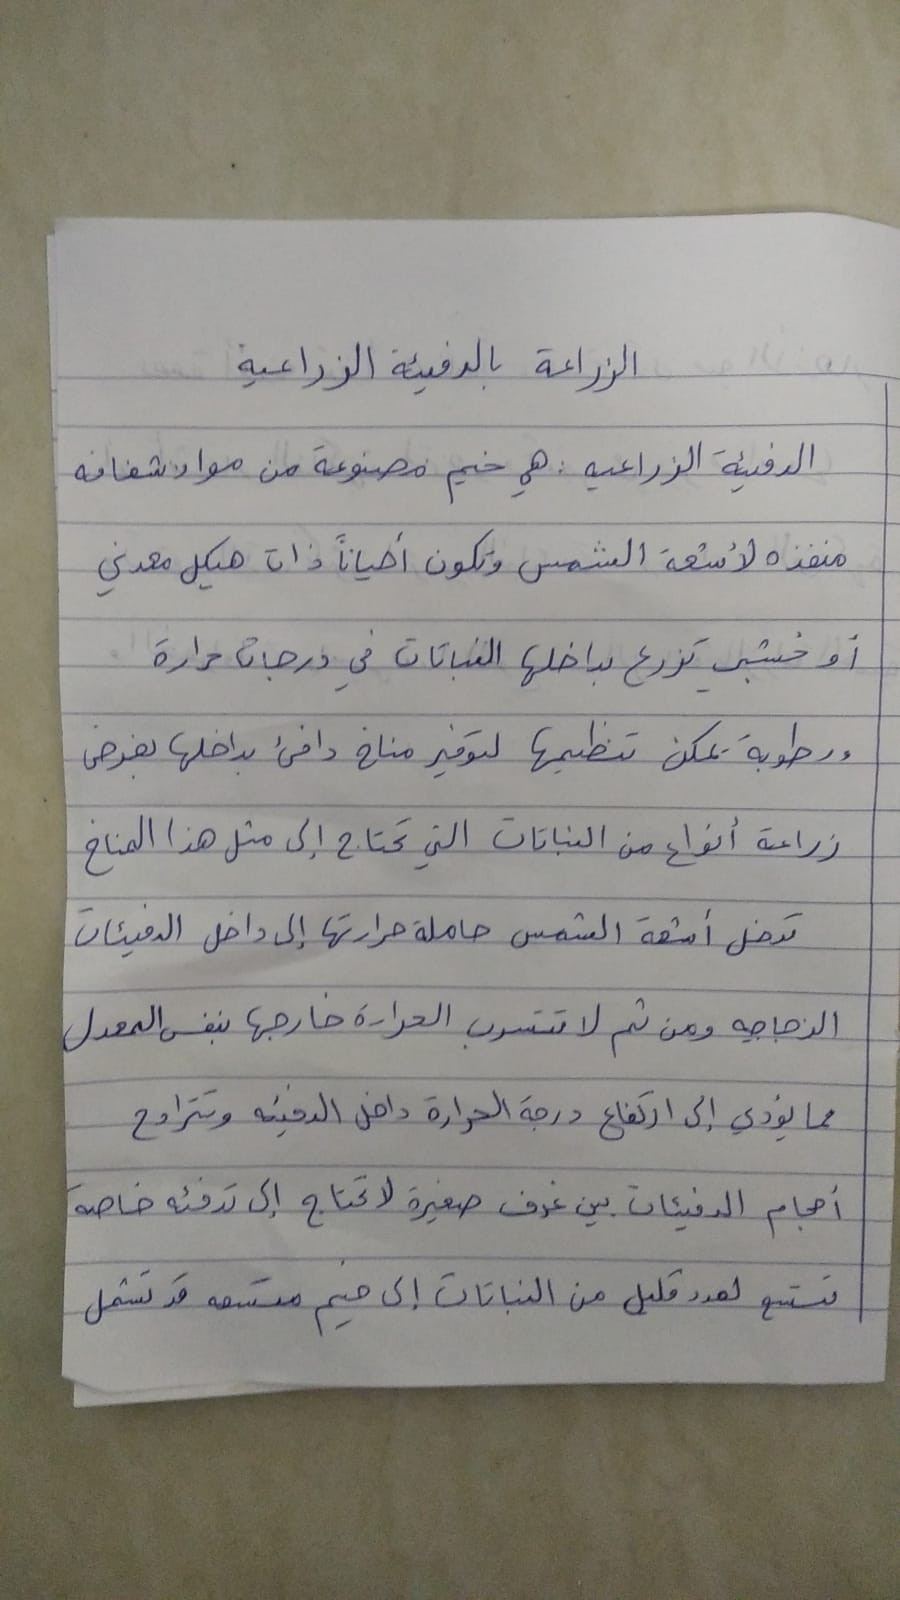 الزراعة بالدفيئة الزراعية
الدفيئة الزراعيه : هي خيم مصنوعة من مواد شفافه
منفذه لأشعة الشمس وتكون أحياناً ذات هيكل معدني
أو خشبي تزرع بداخلها النباتات في درجات حرارة
ورطوبة يمكن تنظيمها لتوفير مناخ دافئ بداخلها بغرض
زراعة أنواع من النباتات التي تحتاج إلى مثل هذا المناخ
تدخل أشعة الشمس حاملة حرارتها إلى داخل الدفيئات
الزجاجيه ومن ثم لا تتسرب الحرارة خارجها بنفس المعدل
مما يؤدي إلى ارتفاع درجة الحرارة داخل الدفيئه وتتراوح
أحجام الدفيئات بين غرف صغيرة لا تحتاج إلى تدفئه خاصة
تتسع لعدد قليل من النباتات إلى خيم متسعه قد تشمل